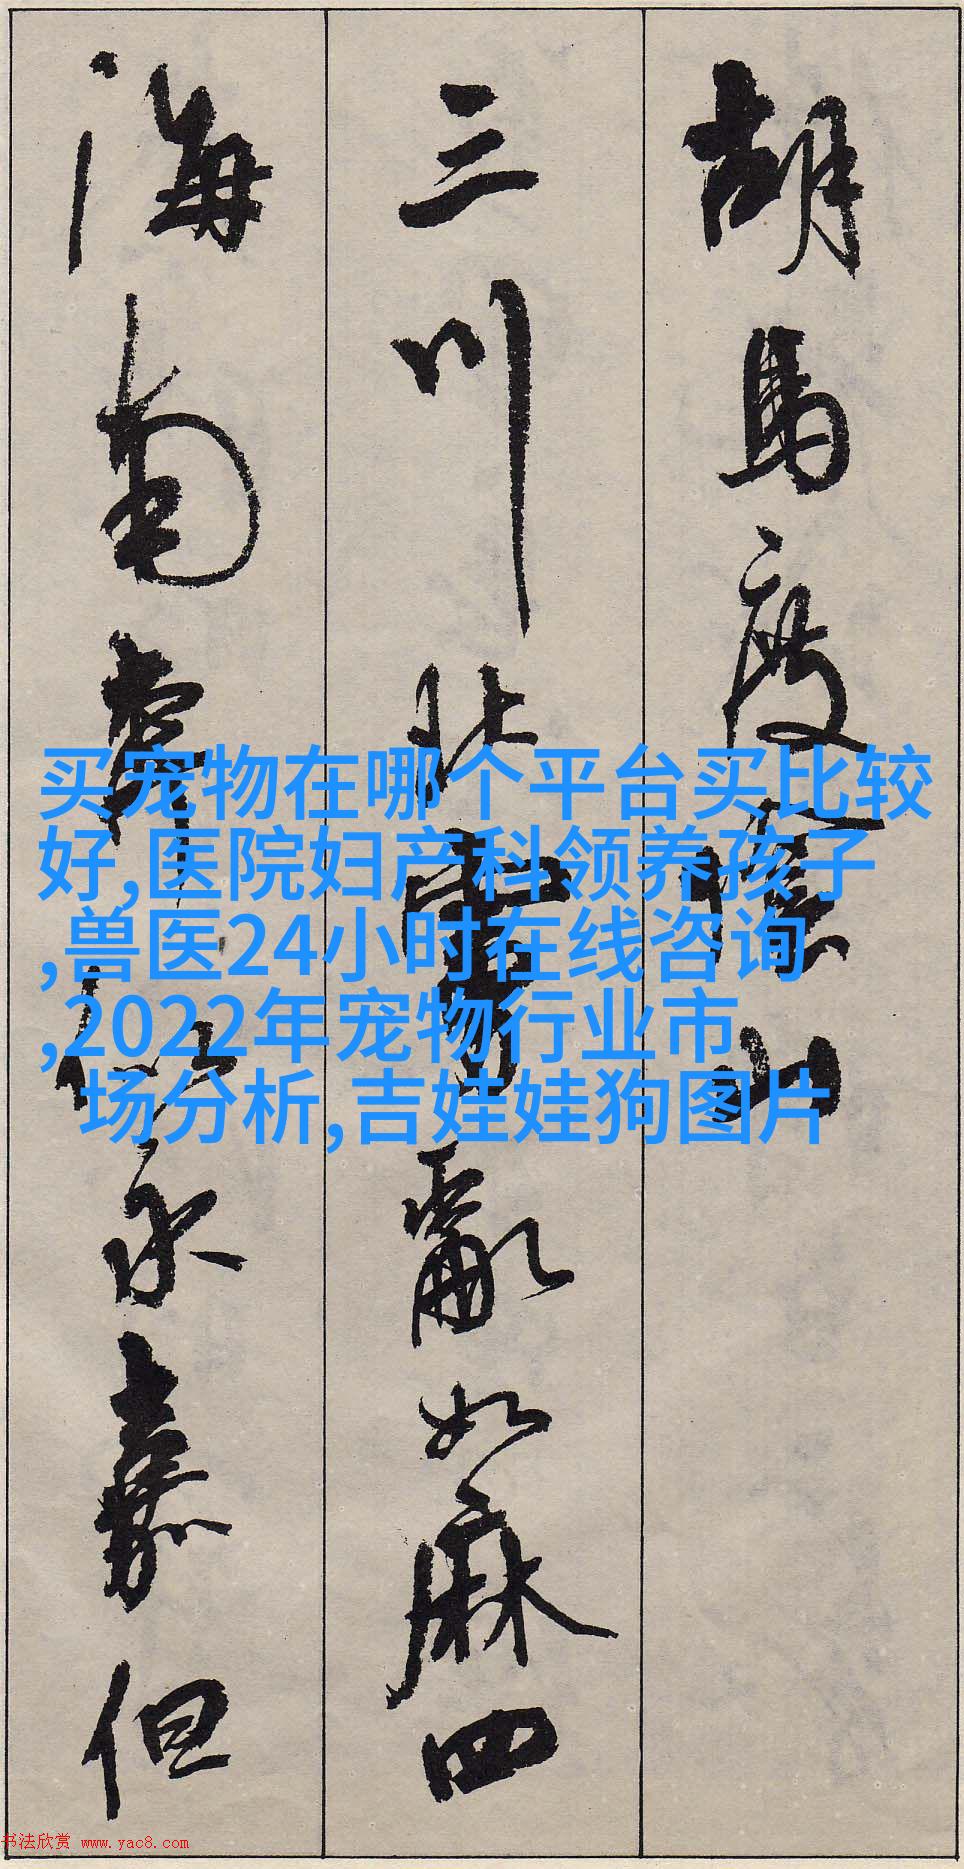 胡馬度陰山
三川北虜亂如麻四
海南奔似永嘉但
买宠物在哪个平台买比较
好,医院妇产科领养孩子
,兽医24小时在线咨询
,2022年宠物行业市
场分析,吉娃娃狗图片
书法欣赏 www.yac8.com